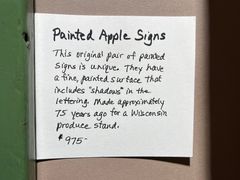 Painted Apple Signs
This original pair of painted
signs is unique. They have
a fine, painted surface that
includes "shadows" in the
lettering. Made approximately
75 years ago for a Wisconsin
produce stand.
$975-